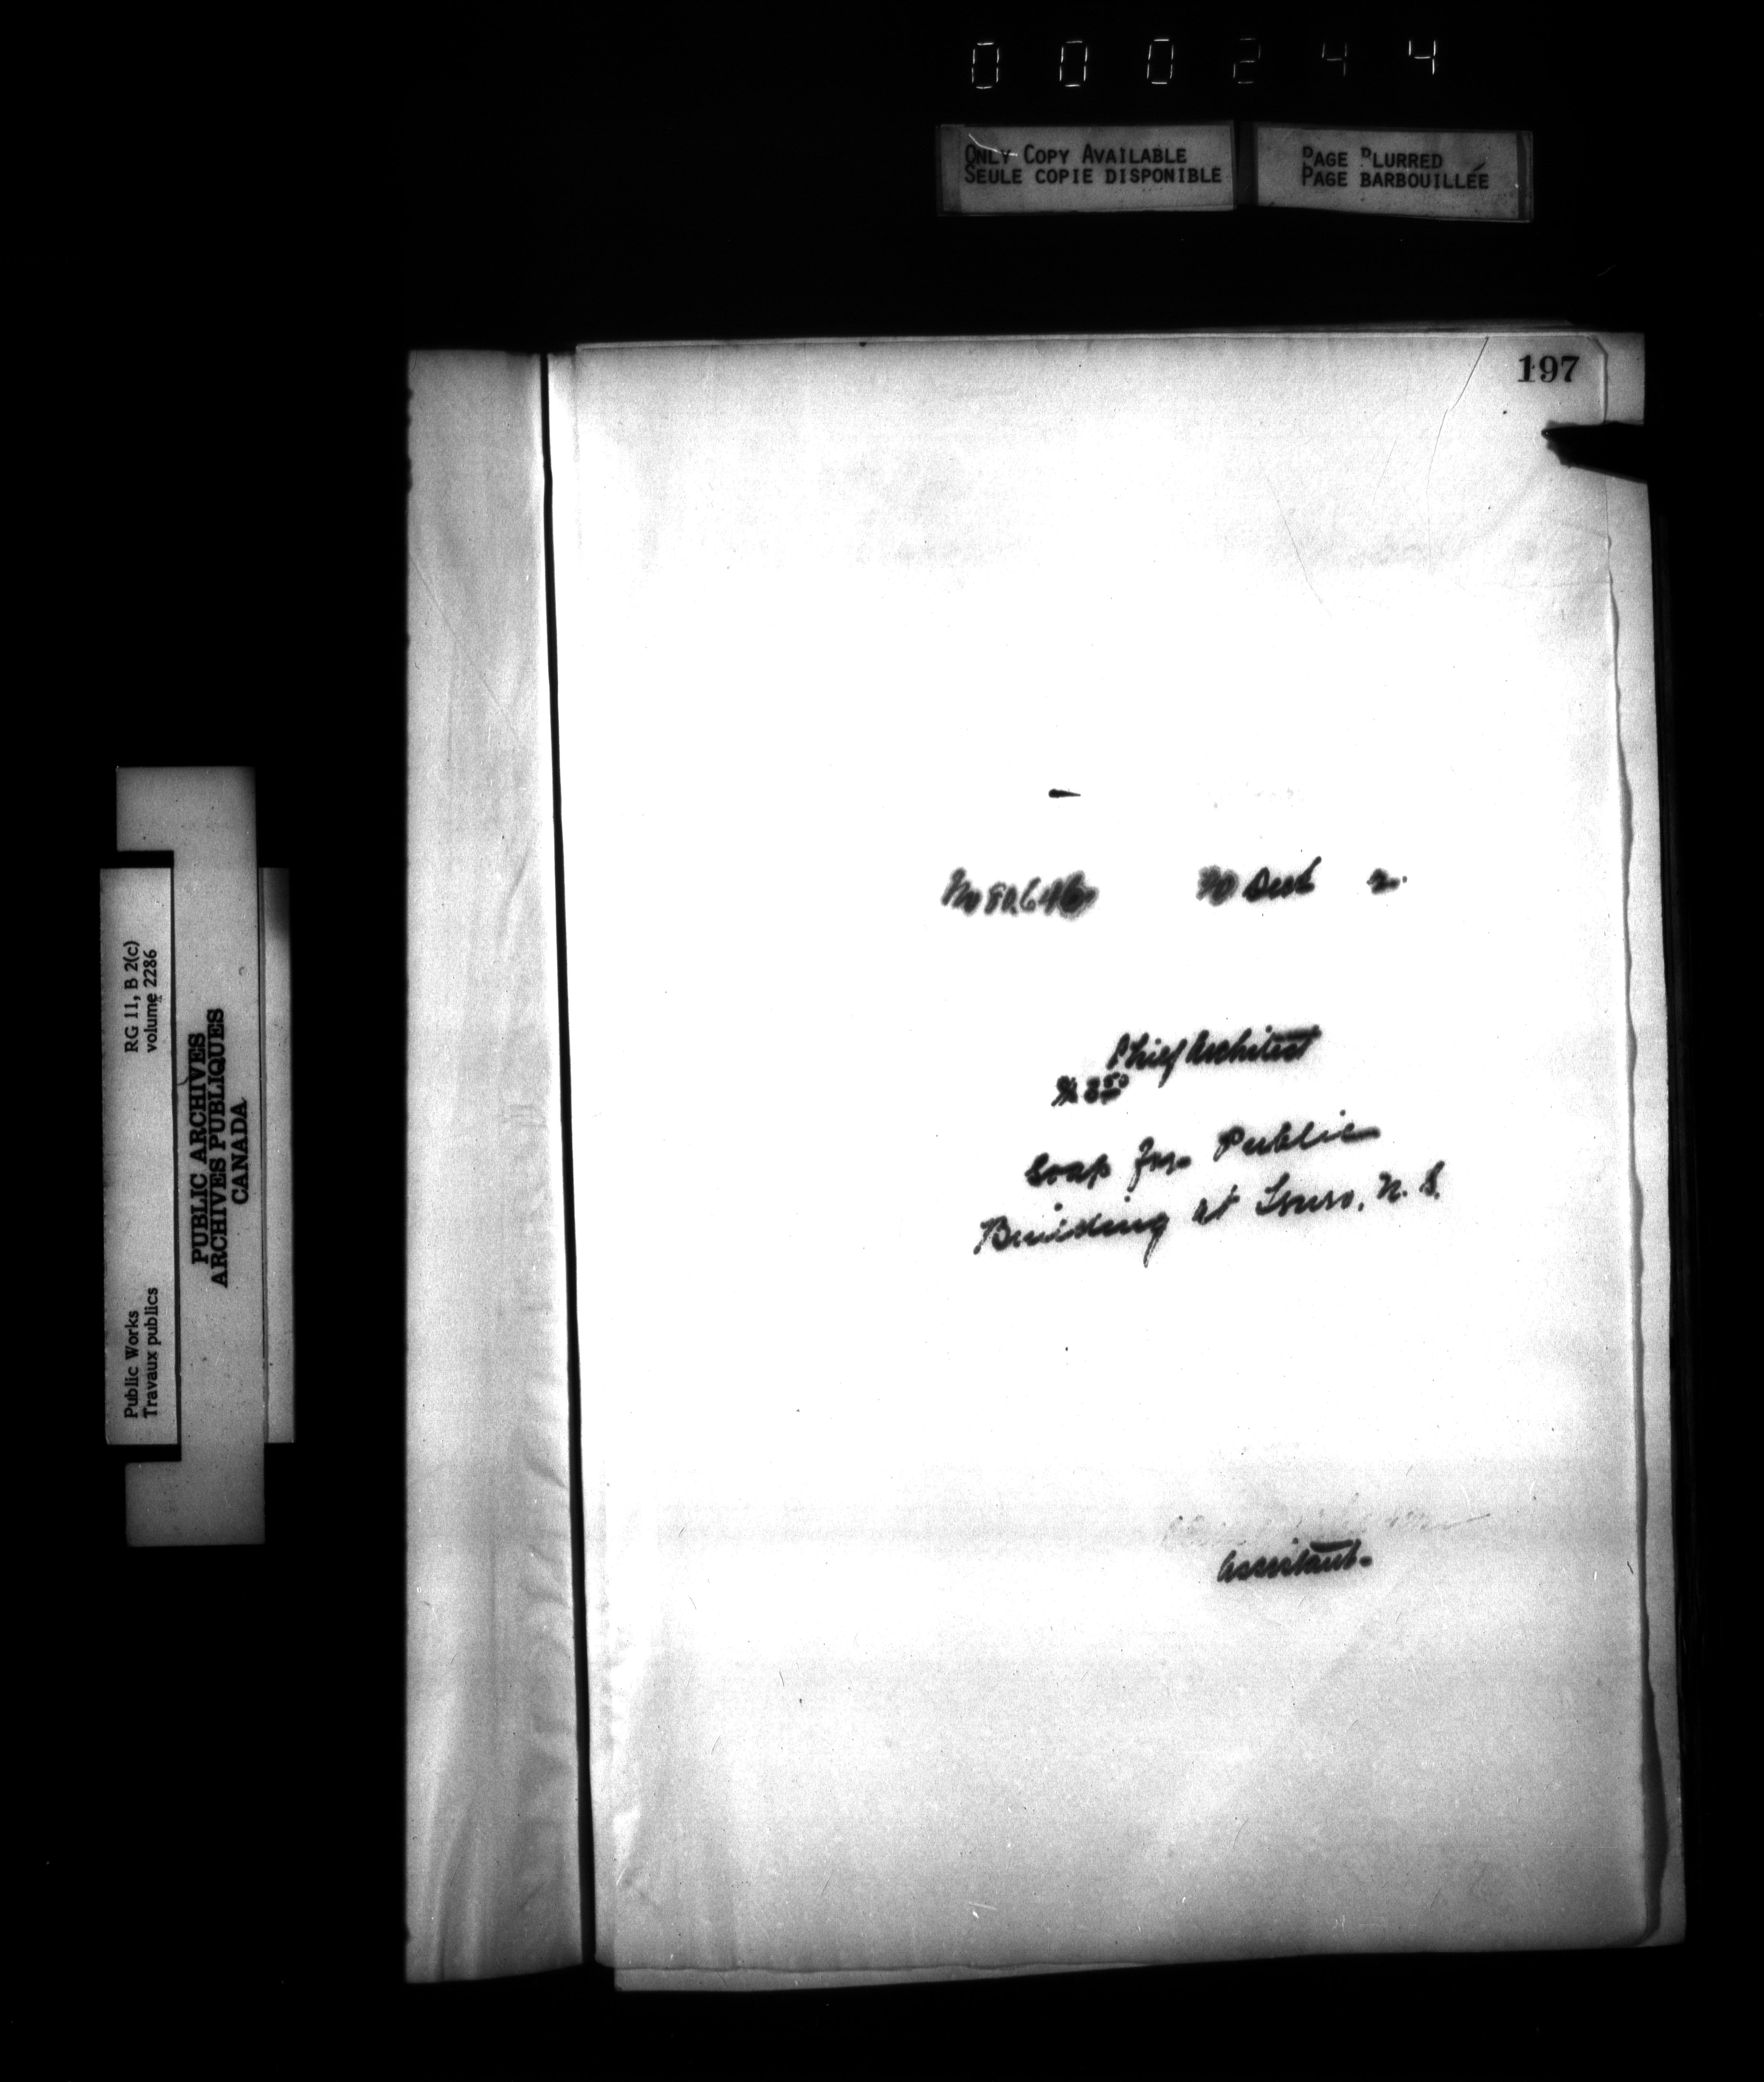 000244
ONLY COPY AVAILABLE
SEULE COPIE DISPONIBLE
PAGE BLURRED
PAGE BARBOUILLÉE
197
No 80.646
Chief Architect
Soap for Public
Building at Truro, N. S.
Assistant.
RG 11, B 2(c)
volume 2286
PUBLIC ARCHIVES
ARCHIVES PUBLIQUES
CANADA
Public Works
Travaux publics